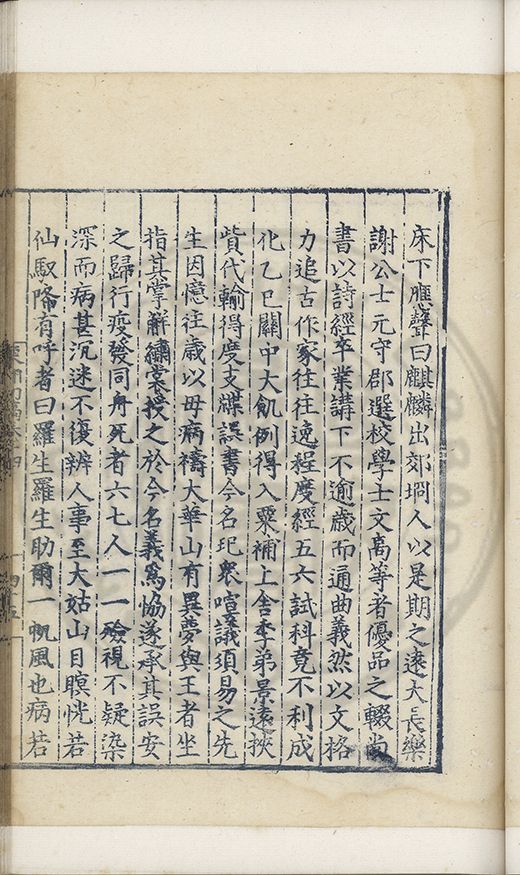 床下應聲曰麒麟出郊坰人以是期之遠大長樂
謝公士元守郡選校學士文高等者優品之輟尚
書以詩經卒業講下不逾歲而通曲義然以文格
力追古作家往往逸程度經五六試科竟不利成
化乙巳關中大飢例得入粟補上舍季弟景遠挾
貲代輸得度支牒誤書今名玘衆喧議須易之先
生因憶往歲以母病禱大華山有異夢與王者坐
指其掌解繡裳授之於今名義爲恊遂承其誤安
之歸行疫發同舟死者六七人一一殮視不疑染
深而病甚沉迷不復辨人事至大姑山目瞑恍若
仙馭降有呼者曰羅生羅生助爾一帆風也病若